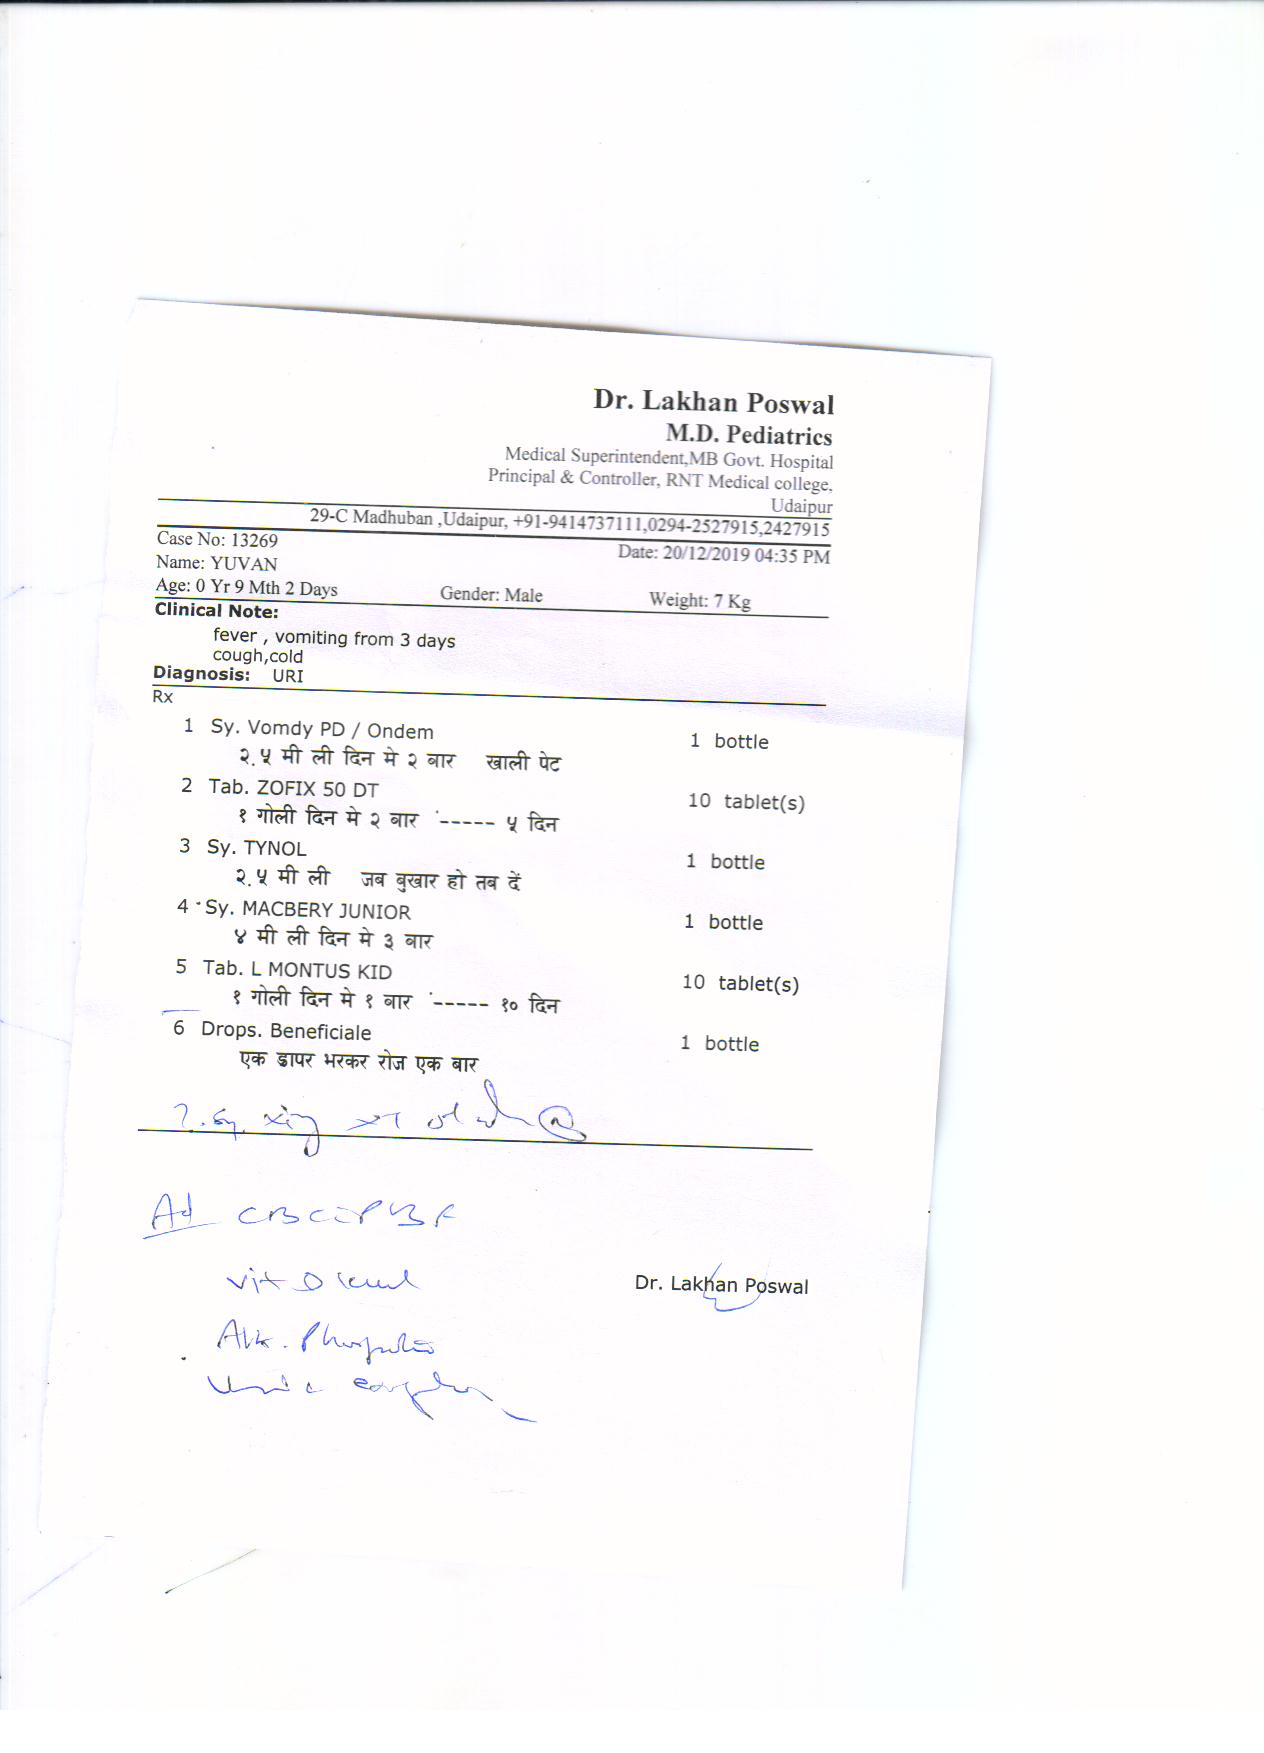 Dr. Lakhan Poswal
M.D. Pediatrics
Medical Superintendent,MB Govt. Hospital
Principal & Controller, RNT Medical college,
Udaipur
29-C Madhuban ,Udaipur, +91-9414737111,0294-2527915,2427915
Case No: 13269 Date: 20/12/2019 04:35 PM
Name: YUVAN
Age: 0 Yr 9 Mth 2 Days Gender: Male Weight: 7 Kg
Clinical Note:
fever , vomiting from 3 days
cough,cold
Diagnosis: URI
Rx
1 Sy. Vomdy PD / Ondem 1 bottle
२.५ मी ली दिन मे २ बार खाली पेट
2 Tab. ZOFIX 50 DT 10 tablet(s)
१ गोली दिन मे २ बार ----- ५ दिन
3 Sy. TYNOL 1 bottle
२.५ मी ली जब बुखार हो तब दें
4 Sy. MACBERY JUNIOR 1 bottle
४ मी ली दिन मे ३ बार
5 Tab. L MONTUS KID 10 tablet(s)
१ गोली दिन मे १ बार ----- १० दिन
6 Drops. Beneficiale 1 bottle
एक ड्रापर भरकर रोज एक बार
Ad CBC
Vit D level
Alk. Phosphatase
Dr. Lakhan Poswal